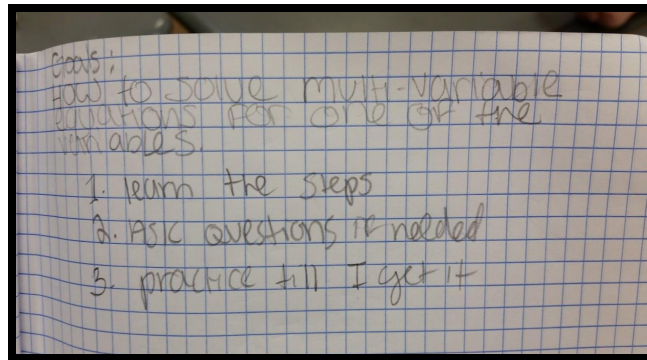 Goals:
How to solve multi-variable
equations for one of the
variables.
1. learn the steps
2. Ask questions if needed
3. practice till I get it